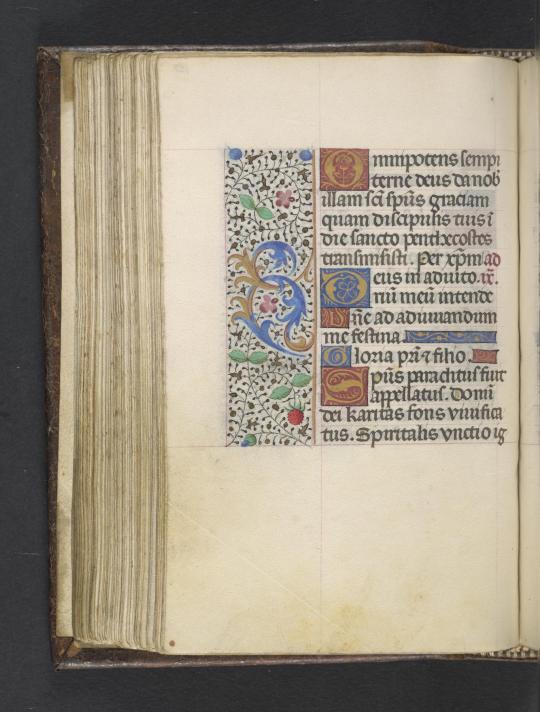 Omnipotens sempi
terne deus da nob
illam sc̄i sp̄us graciam
quam discipulis tuis ī
die sancto penthecostes
transmisisti. Per xp̄m ad
Deus in adiuto. ti.
riū meū intende
Dn̄e ad adiuuandum
me festina
Gloria pr̄i ⁊ filio.
Sp̄us paraclitus fuit
appellatus. Domū
dei karitas fons viuifica
tus. Spiritalis vnctio ig